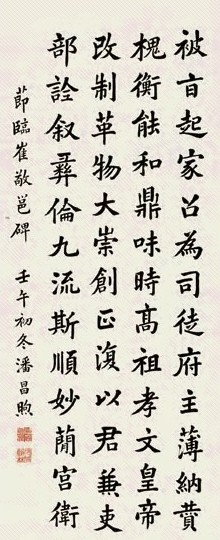 被旨起家召為司徒府主薄納贊
槐衡能和鼎味時高祖孝文皇帝
改制革物大崇創正復以君兼吏
部詮叙彞倫九流斯順妙蕳宫衛
節臨崔敬邕碑 壬午初冬潘昌煦